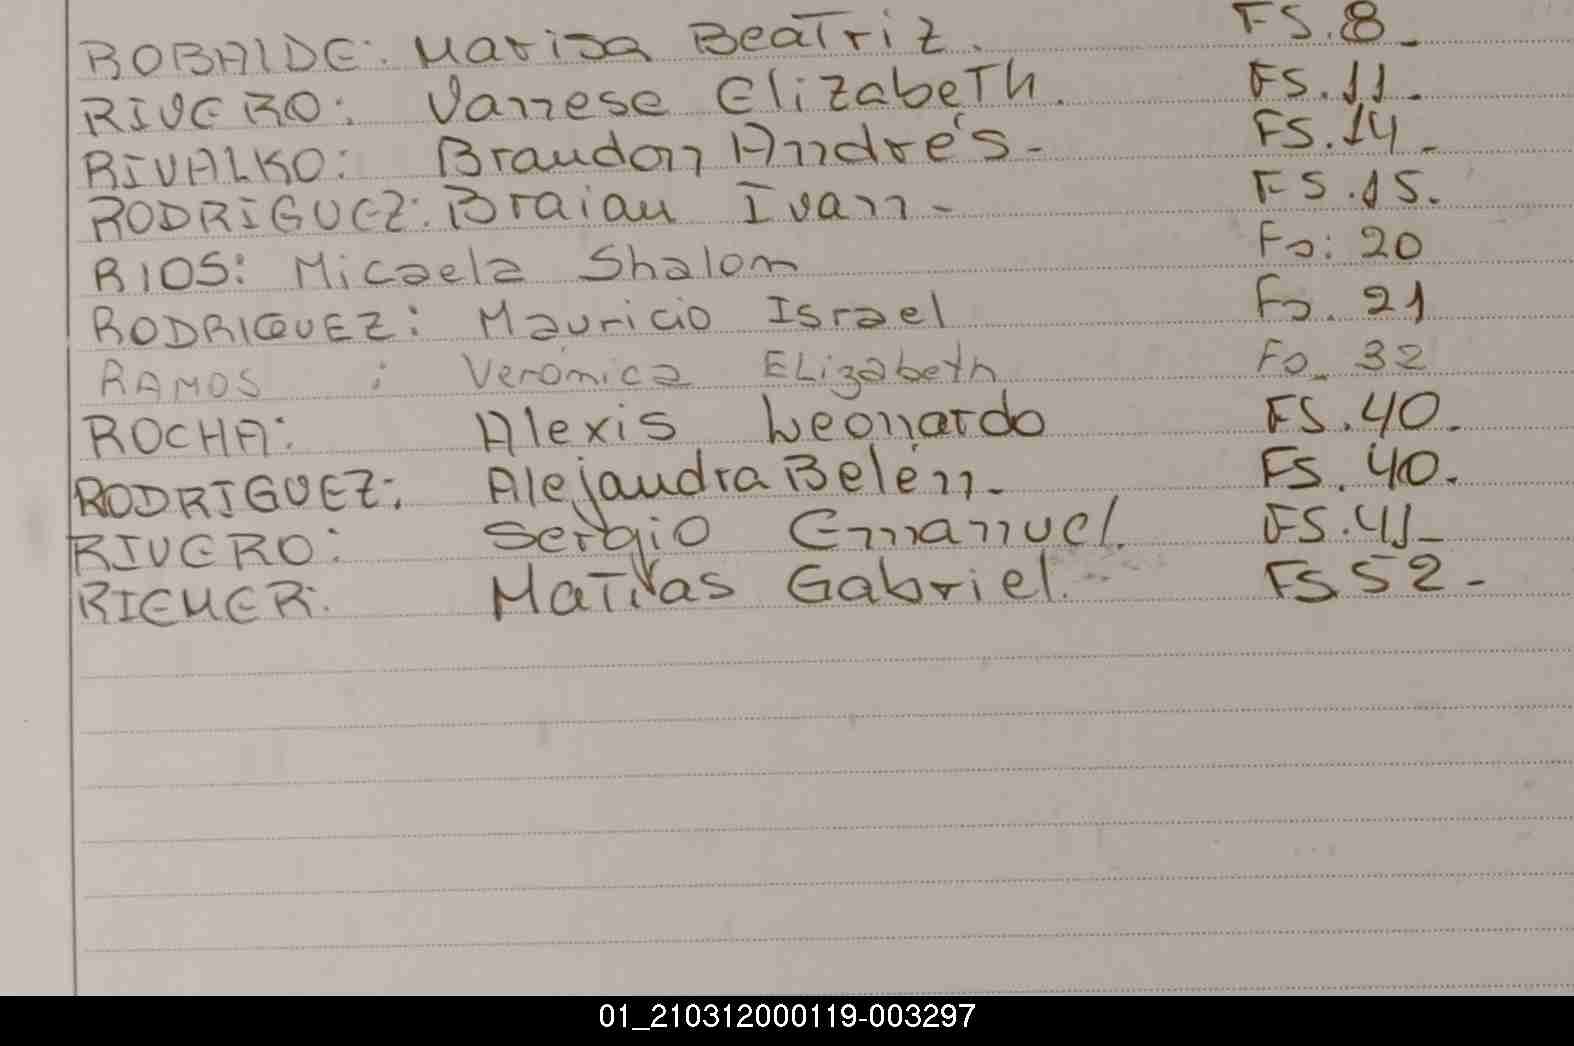 ROBAIDE: Marisa Beatriz. FS.8_
RIVERO: Vanese Elizabeth. FS.11.
RIVALKO: Brandon Andrés- FS.14_
RODRIGUEZ: Braian Ivan - FS.15.
RIOS: Micaela Shalom Fs: 20
RODRIGUEZ: Mauricio Israel Fs. 21
RAMOS : Verónica ELizabeth Fo_ 32
ROCHA: Alexis Leonardo FS.40.
RODRIGUEZ: Alejandra Belén- FS. 40.
RIVERO: Sergio Emanuel. FS.41_
RIEMER: Matías Gabriel. FS 52-
01_210312000119-003297